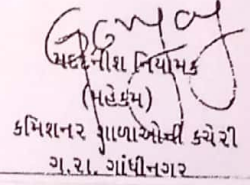 મદદનીશ નિયામક
(મહેકમ)
કમિશનર શાળાઓની કચેરી
ગ.રા. ગાંધીનગર